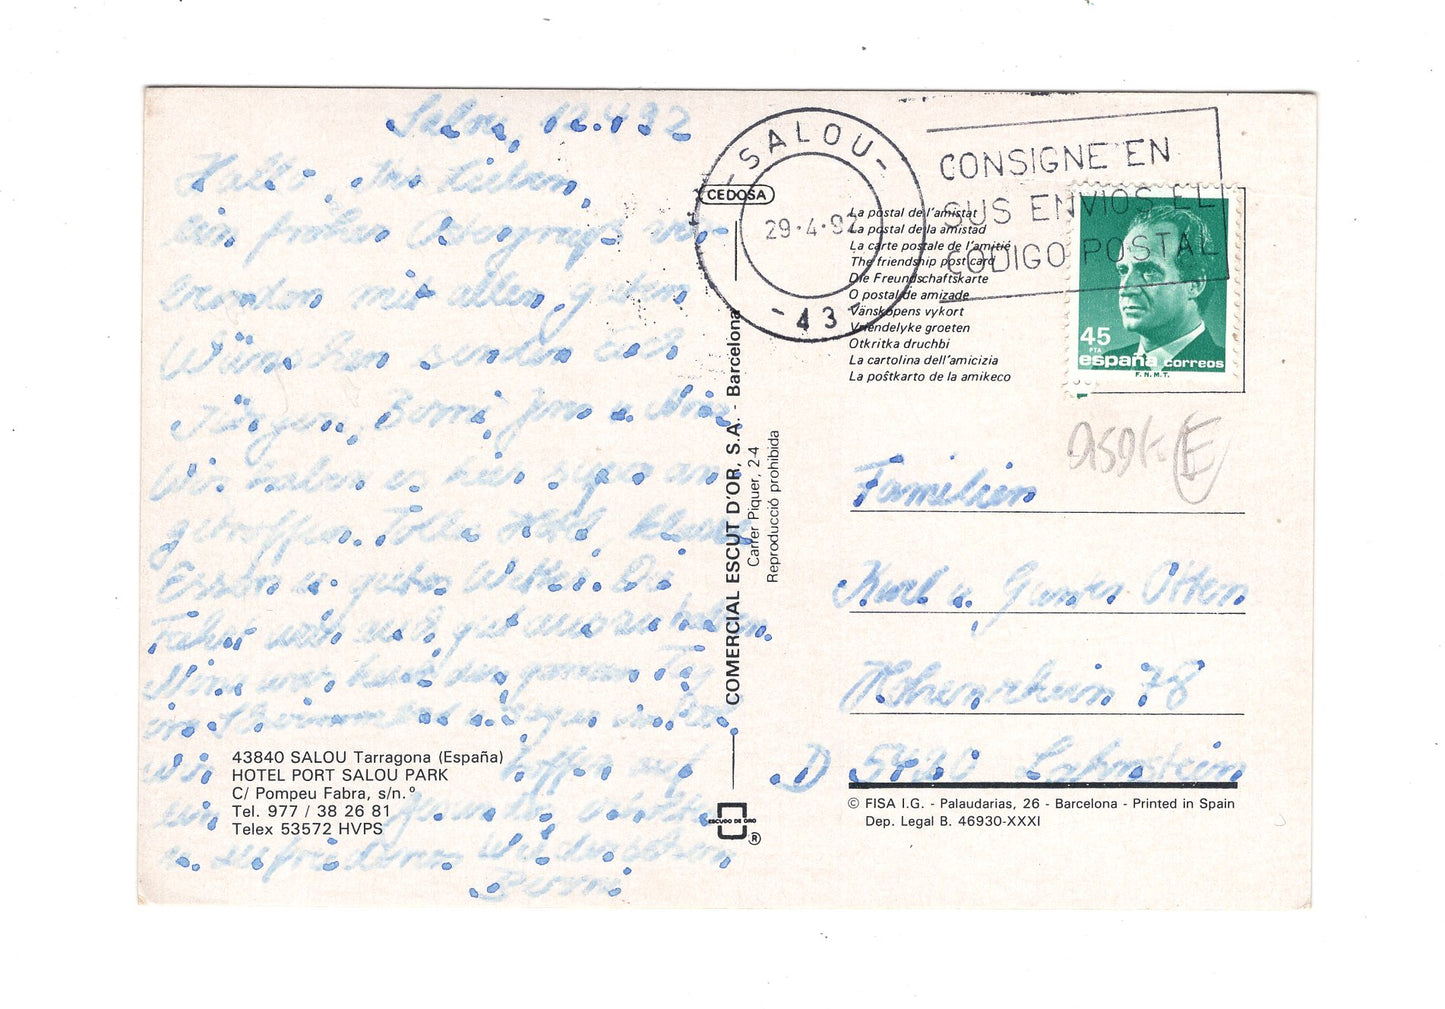 Salou, 12.4.92
Hallo, Ihr Lieben,
ein frohes Ostergruß ver-
bunden mit allen guten
Wünschen senden Euch
Jürgen, Berni, Jens u. Nina
Wir haben es hier super an-
getroffen. Tolles Hotel,
Essen u. gutes Wetter. Die
Fahrt wird auch gut
Nina war heute den ganzen Tag
im u. sogar im
Wir hoffen auf
ein Gesundes
u. zufriedenes Wiedersehen
Berni
43840 SALOU Tarragona (España)
HOTEL PORT SALOU PARK
C/ Pompeu Fabra, s/n.º
Tel. 977 / 38 26 81
Telex 53572 HVPS
CEDOSA
COMERCIAL ESCUT D'OR, S.A. - Barcelona
Carrer Piquer, 2-4
Reproducció prohibida
ESCUDO DE ORO
®
-SALOU-
29·4·92
-43-
CONSIGNE EN
SUS ENVIOS EL
CODIGO POSTAL
La postal de l'amistat
La postal de la amistad
La carte postale de l'amitié
The friendship post card
Die Freundschaftskarte
O postal de amizade
Vänskopens vykort
Vriendelyke groeten
Otkritka druchbi
La cartolina dell'amicizia
La poŝtkarto de la amikeco
45
PTA
españa correos
F.N.M.T.
E
Familien
Karl u. Otten
Hohenrhein 78
D 5420 Lahnstein
© FISA I.G. - Palaudarias, 26 - Barcelona - Printed in Spain
Dep. Legal B. 46930-XXXI